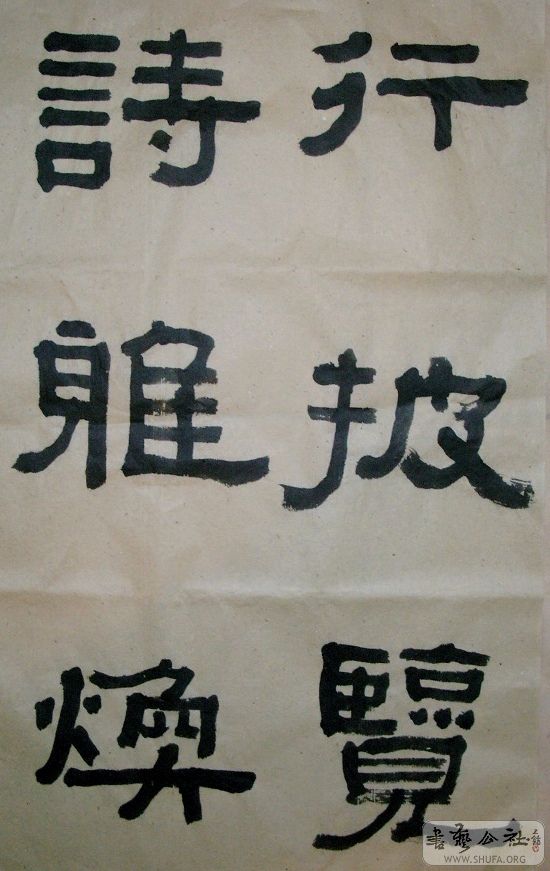 行披覽
詩雅煥
書藝公社
WWW.SHUFA.ORG